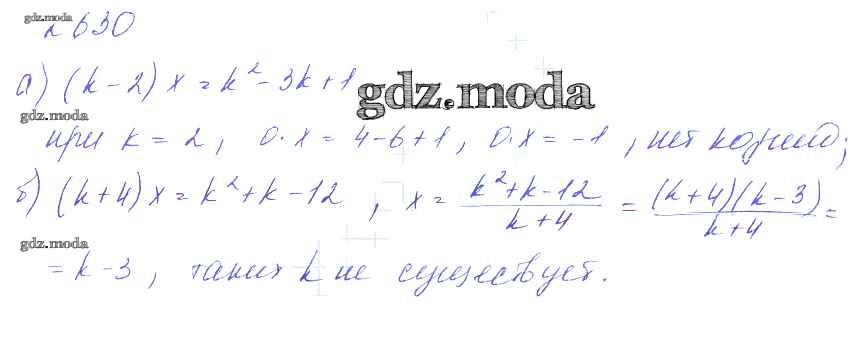 gdz.moda
№ 630
а) (k-2) x = k² - 3k + 1
gdz.moda
gdz.moda
при k = 2, 0·x = 4-6+1, 0·x = -1, нет корней;
б) (k+4) x = k² + k - 12, x = (k²+k-12)/(k+4) = ((k+4)(k-3))/(k+4) =
gdz.moda
= k-3, таких k не существует.